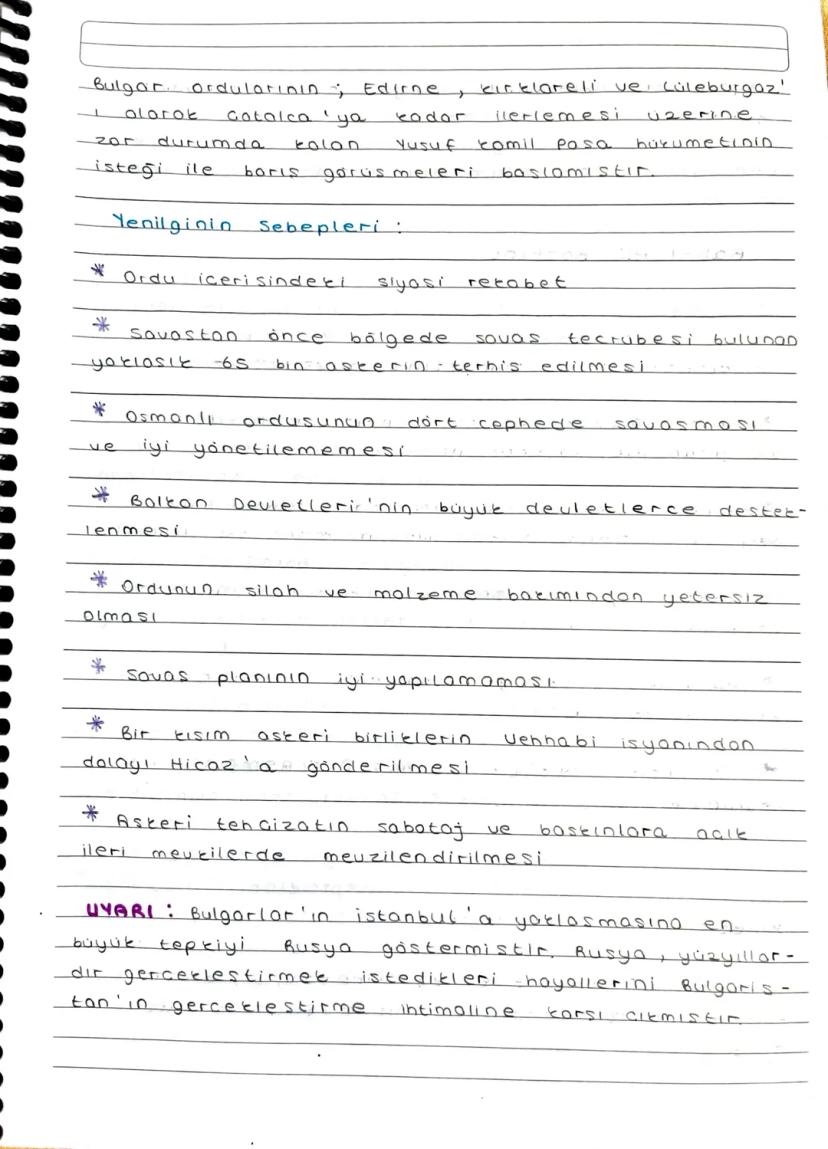 Bulgar ordularının ; Edirne , Kırklareli ve Lüleburgaz'
ı alarak Çatalca'ya kadar ilerlemesi üzerine
zor durumda kalan Yusuf Kamil Paşa hükümetinin
isteği ile barış görüşmeleri başlamıştır.
Yenilginin Sebepleri :
* Ordu içerisindeki siyasi rekabet
* Savaştan önce bölgede savaş tecrübesi bulunan
yaklaşık 65 bin askerin terhis edilmesi
* Osmanlı ordusunun dört cephede savaşması
ve iyi yönetilememesi
* Balkan Devletleri'nin büyük devletlerce destek-
lenmesi
* Ordunun silah ve malzeme bakımından yetersiz
olması
* Savaş planının iyi yapılamaması
* Bir kısım askeri birliklerin Vehhabi isyanından
dolayı Hicaz'a gönderilmesi
* Askeri tehcizatın sabotaj ve baskınlara açık
ileri mevkilerde mevzilendirilmesi
UYARI : Bulgarlar'ın İstanbul'a yaklaşmasına en
büyük tepkiyi Rusya göstermiştir. Rusya , yüzyıllar-
dır gerçekleştirmek istedikleri hayallerini Bulgaris-
tan'ın gerçekleştirme ihtimaline karşı çıkmıştır.